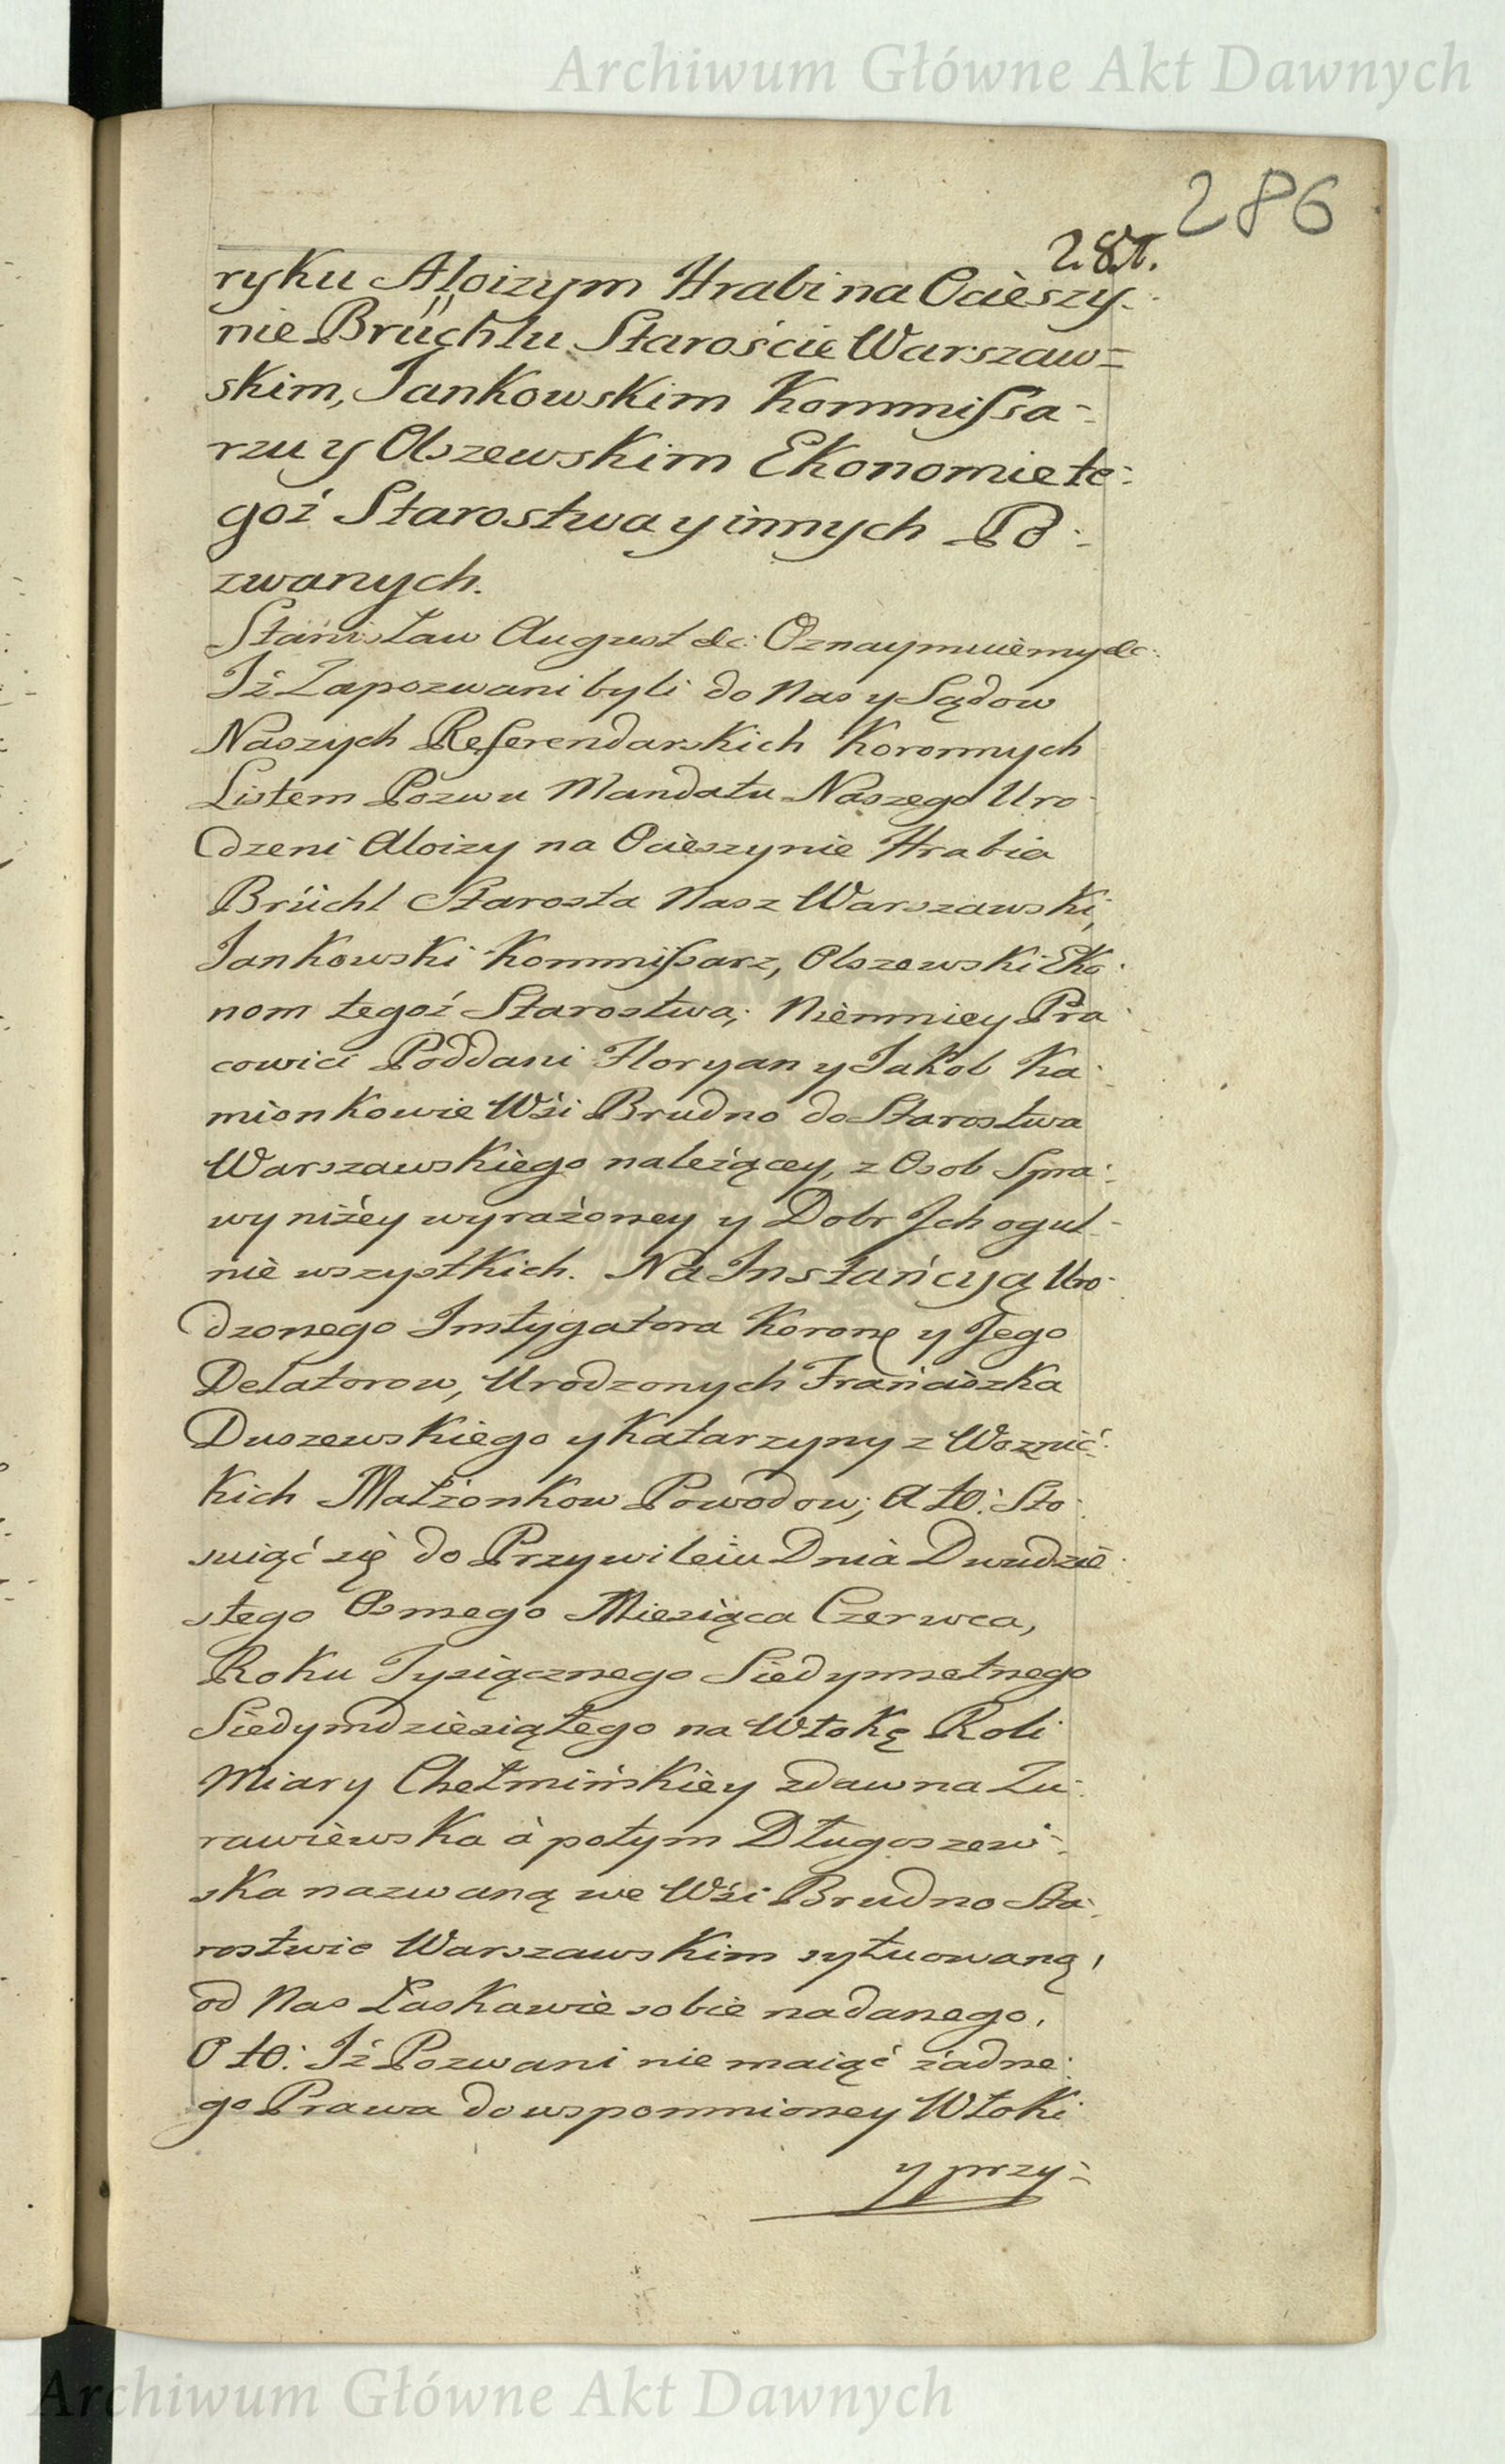 Archiwum Główne Akt Dawnych
286
ryku Aloizym Hrabi na Ocieszy-
nie Brüchlu Staroście Warszaw=
skim, Jankowskim Kommissa-
rzu y Olszewskim Ekonomie te-
goż Starostwa y innych Po-
zwanych.
Stanisław August &c: Oznaymuiemy &c:
Jż Zapozwani byli do Nas y Sądow
Naszych Referendarskich Koronnych
Listem Pozwu Mandatu Naszego Uro-
dzeni Aloizy na Ocieszynie Hrabia
Brüchl Starosta Nasz Warszawski,
Jankowski Kommissarz, Olszewski Eko-
nom tegoż Starostwa; Niemniey Pra-
cowici Poddani Floryan y Jakob Ka-
mionkowie Wśi Brudno do Starostwa
Warszawskiego należącey, z Osob Spra-
wy niżey wyrażoney y Dobr Jch ogul-
nie wszystkich. Na Jnstańcyą Uro-
dzonego Jnstygatora Koronę y Jego
Delatorow, Urodzonych Franciszka
Duszewskiego y Katarzyny z Woznic-
kich Małżonkow Powodow; A to: Sto-
suiąc się do Przywileiu Dnia Dwudzie-
stego Osmego Miesiąca Czerwca,
Roku Tysiącznego Siedymsetnego
Siedymdziesiątego na Włokę Roli
Miary Chełmińskiey zdawna Żu-
rawiewska à potym Długoszew-
ska nazwaną we Wśi Brudno Sta-
rostwie Warszawskim sytuowaną,
od Nas Łaskawie sobie nadanego.
O to: Jż Pozwani nie maiąc żadne-
go Prawa do wspomnioney Włoki
y przy-
Archiwum Główne Akt Dawnych